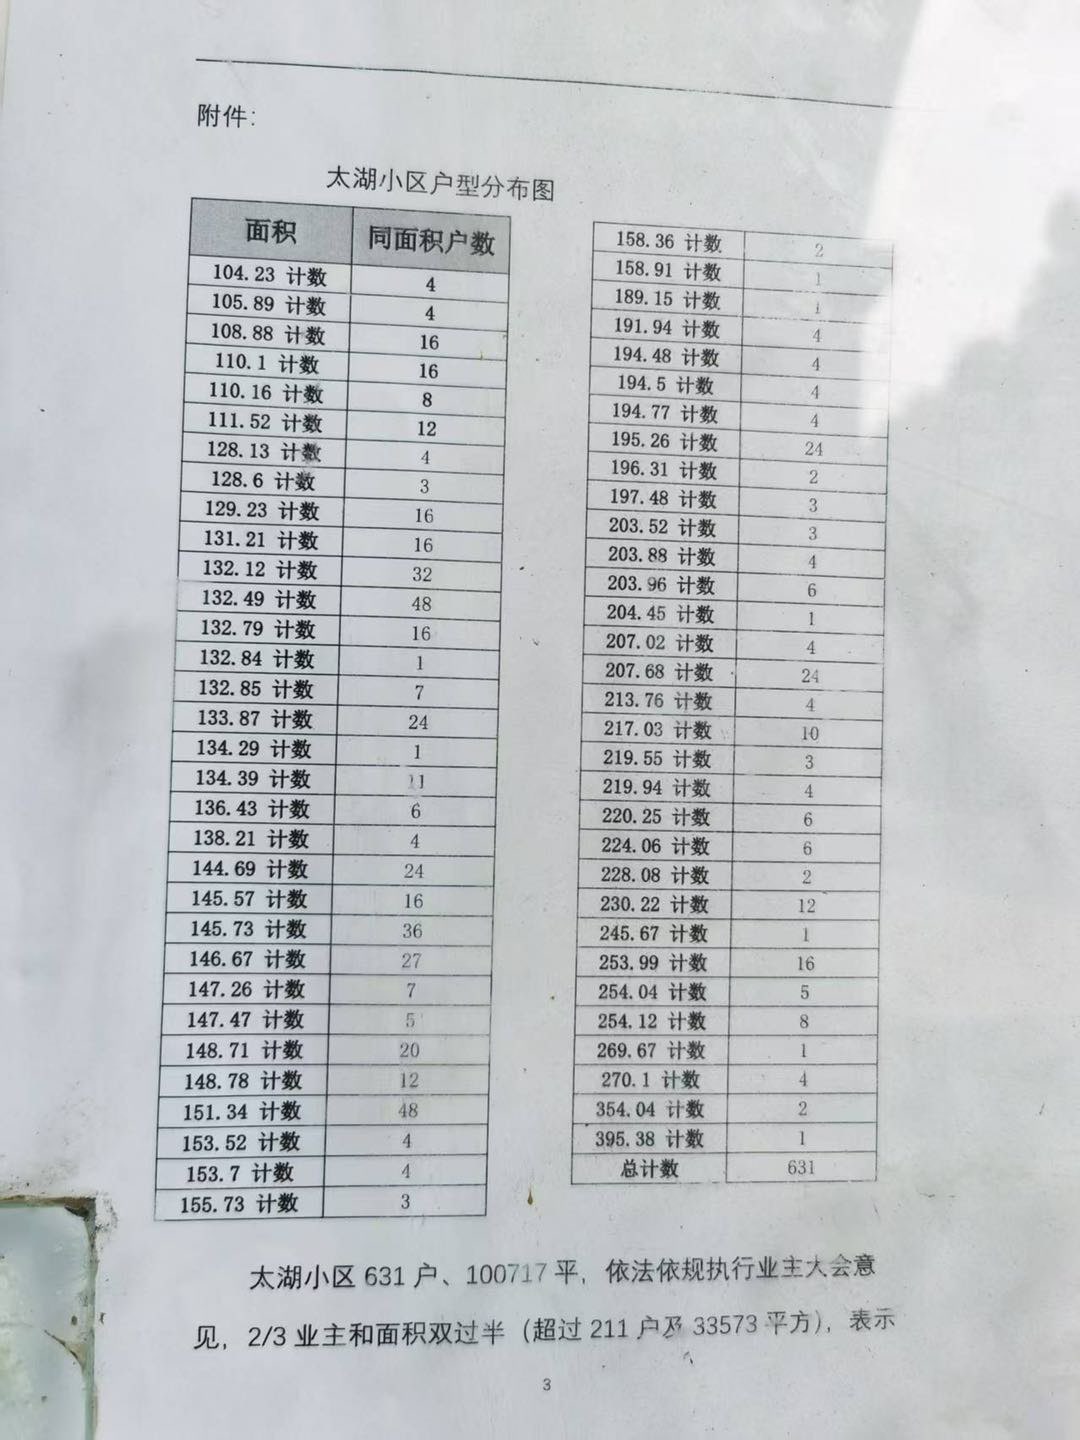 附件：
太湖小区户型分布图
面积 同面积户数
104.23 计数 4
105.89 计数 4
108.88 计数 16
110.1 计数 16
110.16 计数 8
111.52 计数 12
128.13 计数 4
128.6 计数 3
129.23 计数 16
131.21 计数 16
132.12 计数 32
132.49 计数 48
132.79 计数 16
132.84 计数 1
132.85 计数 7
133.87 计数 24
134.29 计数 1
134.39 计数 11
136.43 计数 6
138.21 计数 4
144.69 计数 24
145.57 计数 16
145.73 计数 36
146.67 计数 27
147.26 计数 7
147.47 计数 5
148.71 计数 20
148.78 计数 12
151.34 计数 48
153.52 计数 4
153.7 计数 4
155.73 计数 3
158.36 计数 2
158.91 计数 1
189.15 计数 1
191.94 计数 4
194.48 计数 4
194.5 计数 4
194.77 计数 4
195.26 计数 24
196.31 计数 2
197.48 计数 3
203.52 计数 3
203.88 计数 4
203.96 计数 6
204.45 计数 1
207.02 计数 4
207.68 计数 24
213.76 计数 4
217.03 计数 10
219.55 计数 3
219.94 计数 4
220.25 计数 6
224.06 计数 6
228.08 计数 2
230.22 计数 12
245.67 计数 1
253.99 计数 16
254.04 计数 5
254.12 计数 8
269.67 计数 1
270.1 计数 4
354.04 计数 2
395.38 计数 1
总计数 631
太湖小区 631 户、100717 平，依法依规执行业主大会意
见，2/3 业主和面积双过半（超过 211 户及 33573 平方），表示
3